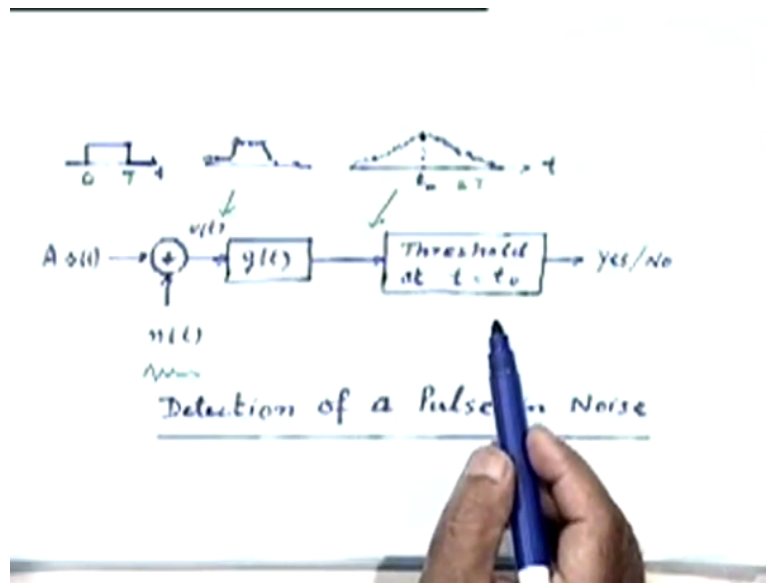 0 T t
t₀ 2T t
v(t)
A s(t) + g(t) Threshold at t = t₀ Yes/No
n(t)
Detection of a Pulse in Noise